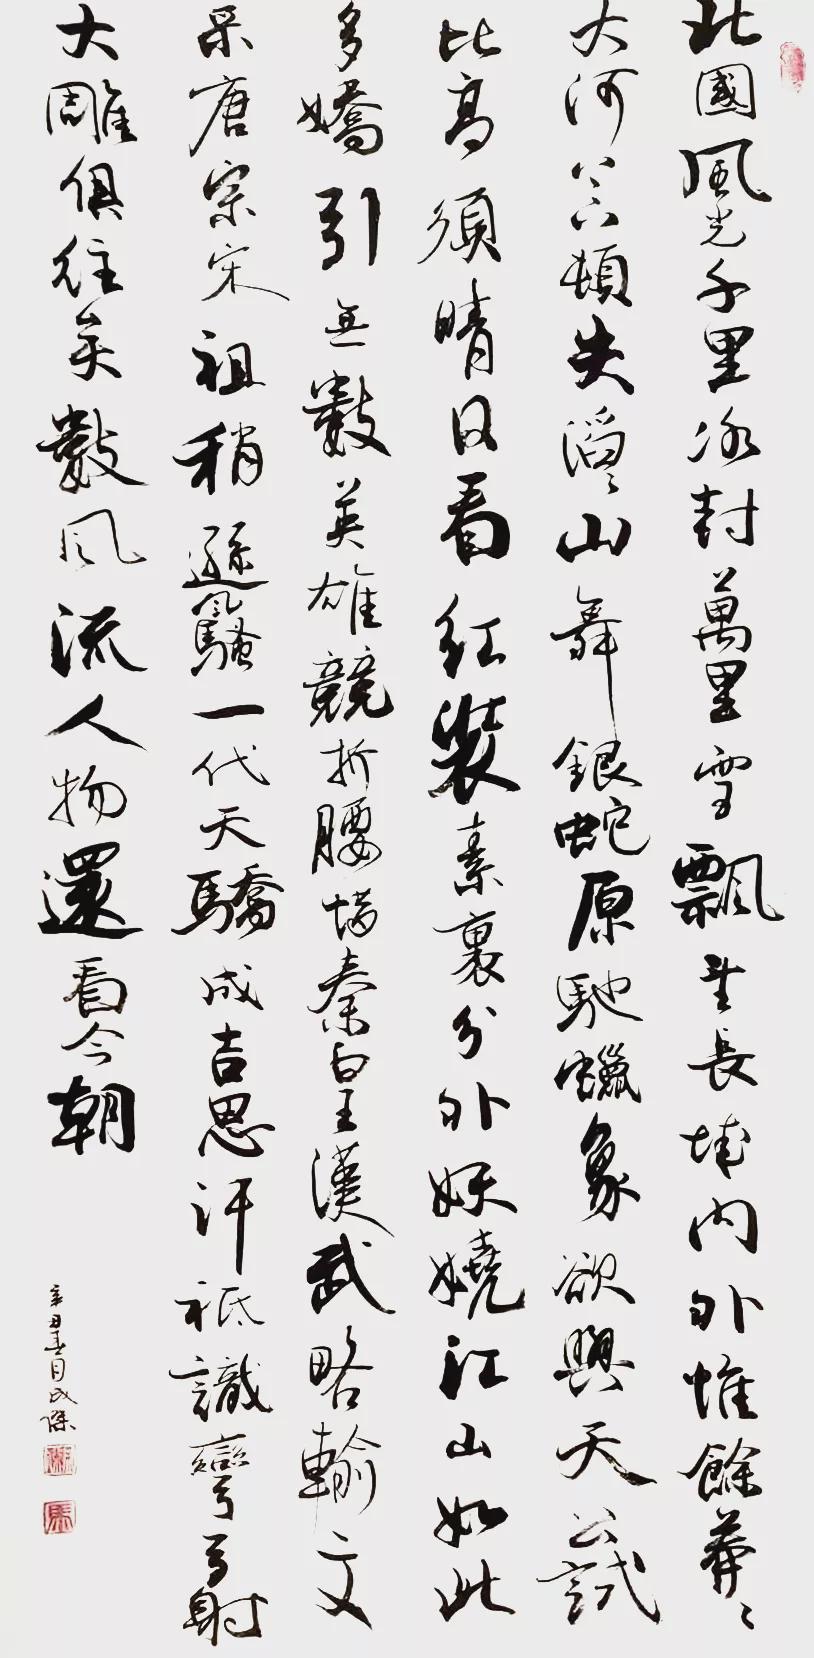 北國風光千里冰封萬里雪飄望長城内外惟餘莽〻
大河上下頓失滔〻山舞銀蛇原馳蠟象欲與天公試
比高須晴日看紅裝素裹分外妖嬈江山如此
多嬌引無數英雄競折腰惜秦皇漢武略輸文
采唐宗宋祖稍遜風騷一代天驕成吉思汗祗識彎弓射
大雕俱往矣數風流人物還看今朝
辛丑春月成傑